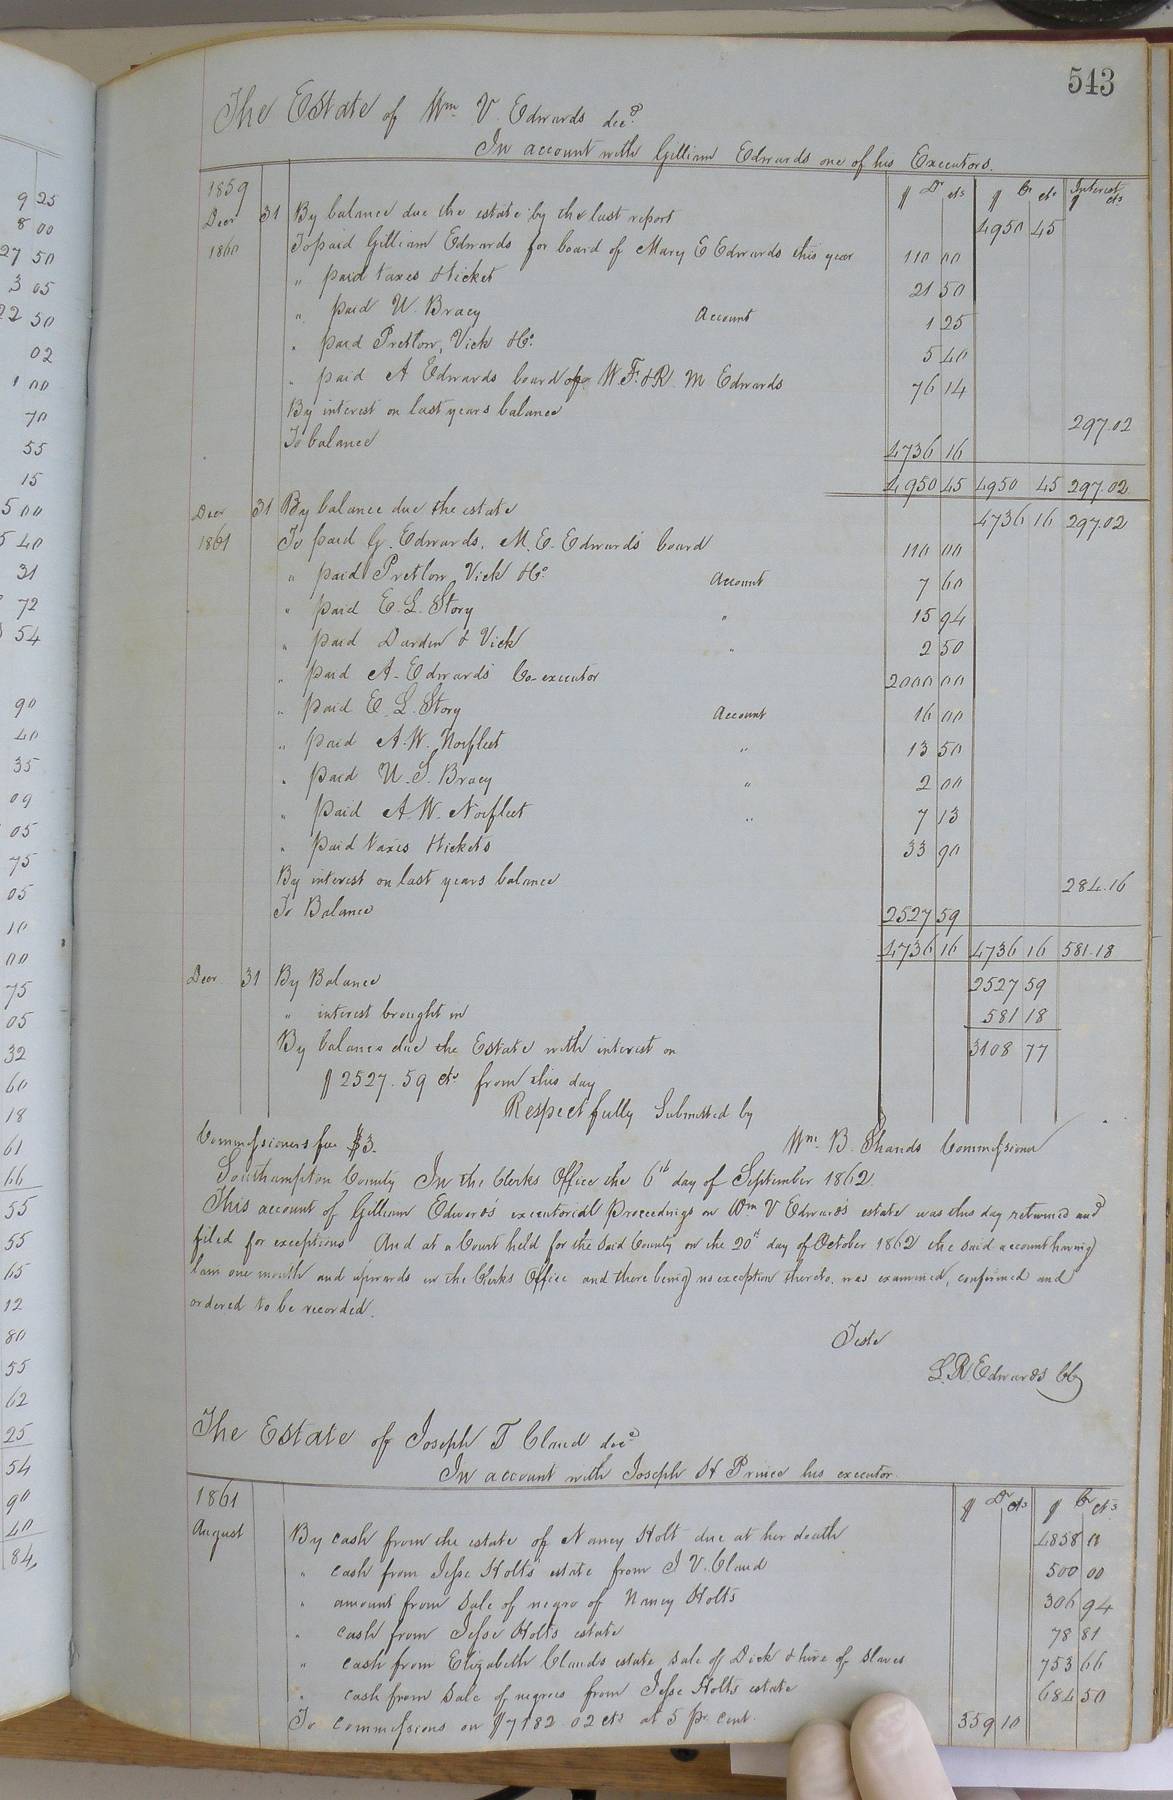 543
The Estate of Wm. V. Edwards decd.
In account with Gilliam Edwards one of his Executors.
1859 $ Dr cts $ Cr cts Interest $ cts
Decr 31 By balance due the estate by the last report 4950 45
1860 To paid Gilliam Edwards for board of Mary E Edwards this year 110 00
" paid taxes & ticket 21 50
" paid U. Bracy Account 1 25
" paid Pretlow, Vick & Co. 5 40
" paid A Edwards board of W. F. & R. M Edwards 76 14
By interest on last years balance 297.02
To balance 4736 16
4950 45 4950 45 297.02
Decr 31 By balance due the estate 4736 16 297.02
1861 To paid G. Edwards, M. E. Edwards board 110 00
" paid Pretlow Vick & Co. Account 7 60
" paid E. L. Story " 15 94
" paid Darden & Vick " 2 50
" paid A. Edwards Co-executor 2000 00
" paid E. L. Story Account 16 00
" paid A. W. Norfleet " 13 50
" paid U. S. Bracy " 2 00
" paid A. W. Norfleet " 7 13
" paid taxes & tickets 33 90
By interest on last years balance 284.16
To Balance 2527 59
4736 16 4736 16 581.18
Decr 31 By Balance 2527 59
" interest brought in 581 18
By balance due the Estate with interest on 3108 77
$2527.59 cts from this day
Respectfully Submitted by
Commissioners fee $3. Wm. B. Shands Commissioner
Southampton County In the Clerks Office the 6th day of September 1862
This account of Gilliam Edwards' executorial proceedings on Wm V Edwards' estate was this day returned and
filed for exceptions And at a Court held for the said County on the 20th day of October 1862 the said account having
lain one month and upwards in the Clerks Office and there being no exception thereto, was examined, confirmed and
ordered to be recorded.
Teste
L. R. Edwards CC
The Estate of Joseph T Claud decd.
In account with Joseph H Prince his executor.
1861 $ Dr cts $ Cr cts
August By cash from the estate of Nancy Holt due at her death 4858 11
" cash from Jesse Holts estate from J V. Claud 500 00
" amount from sale of negro of Nancy Holts 306 94
" cash from Jesse Holts estate 78 81
" cash from Elizabeth Clauds estate sale of Dick & hire of slaves 753 66
" cash from sale of negroes from Jesse Holts estate 684 50
To commissions on $7182 02 cts at 5 pr cent. 359 10